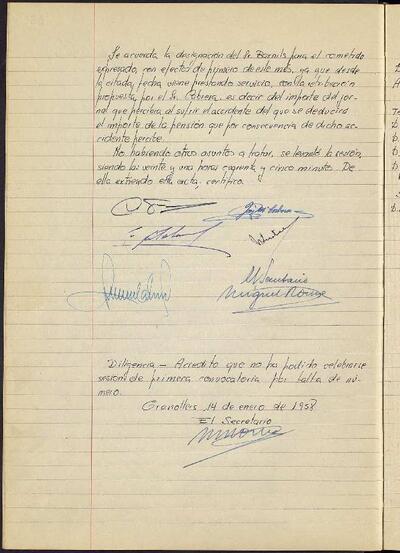 Se acuerda la designación del Sr. Barnils para el cometido
expresado, con efectos de primero de este mes, ya que desde
la citada fecha viene prestando servicio, con la retribución
propuesta por el Sr. Cabrera, es decir del importe del jor-
nal que percibía al sufrir el accidente del que se deducirá
el importe de la pensión que por consecuencia de dicho ac-
cidente percibe.
No habiendo otros asuntos a tratar, se levantó la sesión,
siendo las veinte y una horas cuarenta y cinco minutos. De
ella extiendo esta acta, certifico.
El Secretario
Miguel
Diligencia - Acredito que no ha podido celebrarse
sesión de primera convocatoria por falta de nú-
mero.
Granollers, 14 de enero de 1958
El Secretario